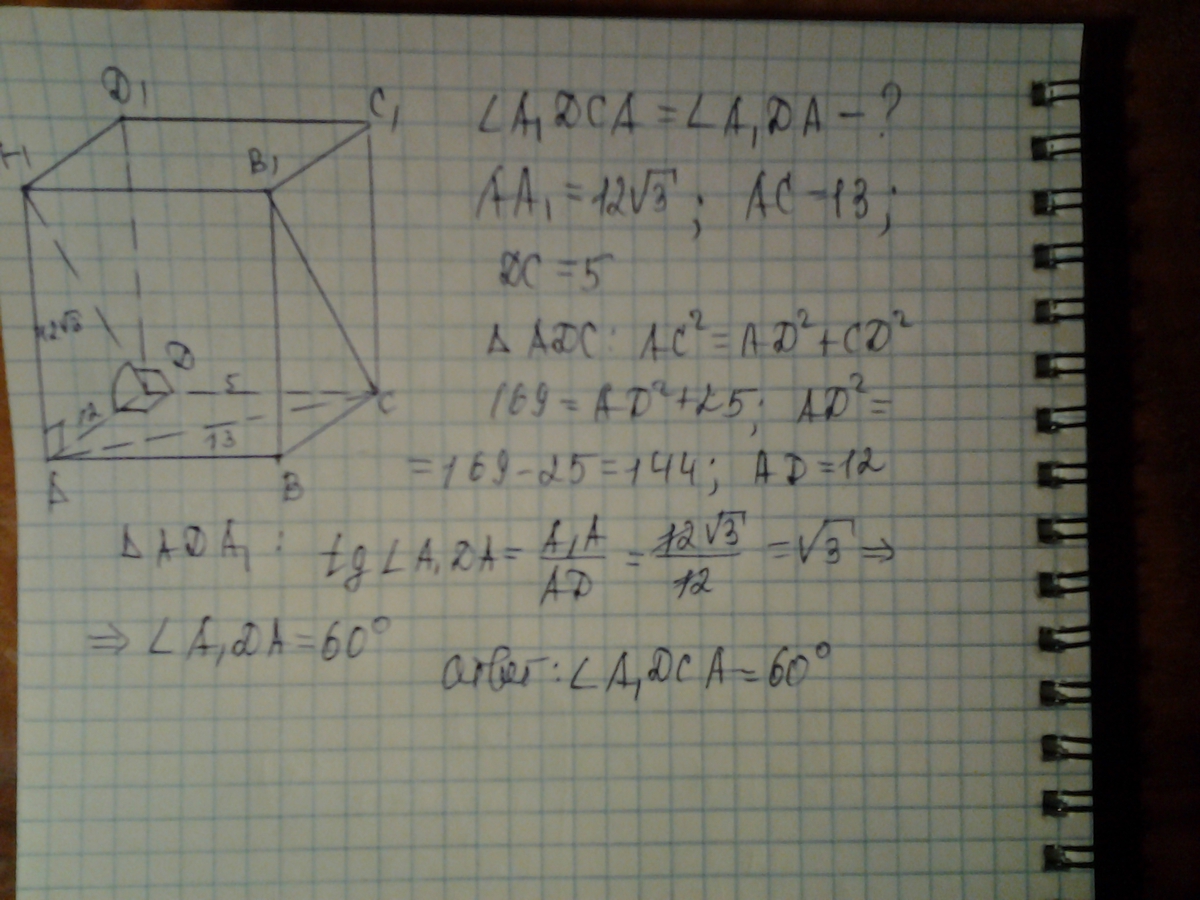 D₁
C₁
A₁
B₁
12√3
D
12
5
C
13
A
B
∠A₁DCA = ∠A₁DA – ?
AA₁ = 12√3 ; AC = 13 ;
DC = 5
Δ ADC: AC² = AD² + CD²
169 = AD² + 25; AD² =
= 169 – 25 = 144; AD = 12
Δ ADA₁ : tg ∠A₁DA = A₁A / AD = 12√3 / 12 = √3 ⇒
⇒ ∠A₁DA = 60°
Ответ: ∠A₁DCA = 60°